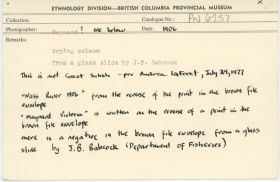 ETHNOLOGY DIVISION—BRITISH COLUMBIA PROVINCIAL MUSEUM
Collection Catalogue No.: PN 6257
Photographer: Maynard ? see below Date: 1906
Remarks:
drying salmon
from a glass slide by J.P. Babcock
This is not Coast Salish - per Andrea Laforet, July 29, 1977
"Nass River 1906" from the reverse of the print in the brown file
envelope
"Maynard Victoria" is written on the reverse of a print in the
brown file envelope
there is a negative in the brown file envelope from a glass
slide by J.B. Babcock (Department of Fisheries)